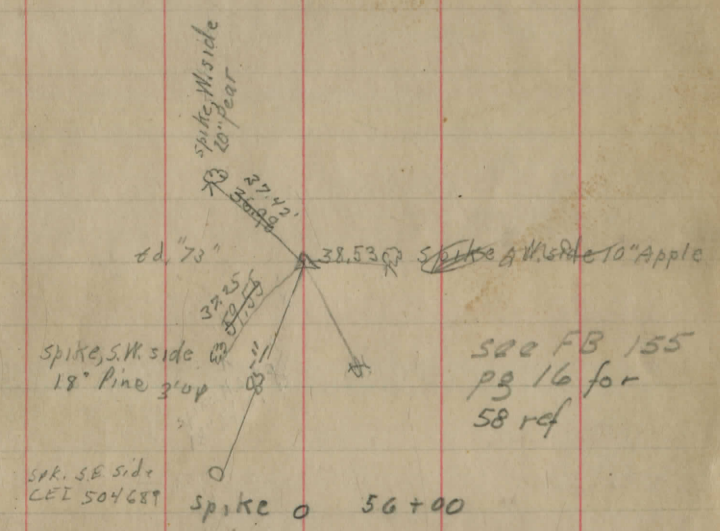 spike, W. side
20" Pear
37.42'
36.98
td. "73"
38.53
spike W. side 10" Apple
37.25
spike, S.W. side
18" Pine 3' up
see FB 155
pg 16 for
58 ref
spk. S.E. side
CEI 504689
spike 0 56+00